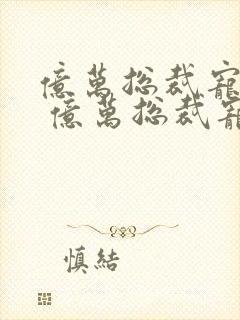 億萬總裁寵
億萬總裁寵
慎結